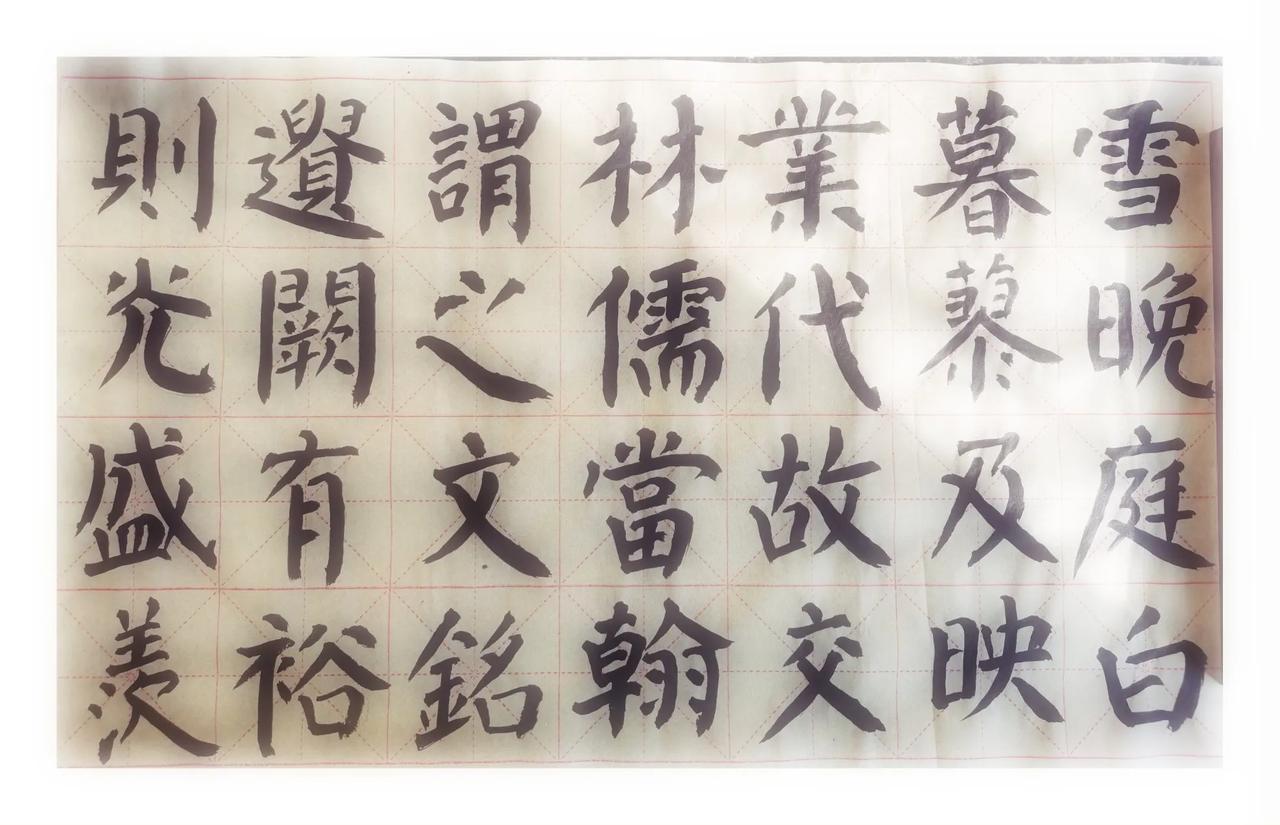 雪晚庭白
暮藜及映
業代故交
林儒當翰
謂之文銘
遺闕有裕
則光盛羨